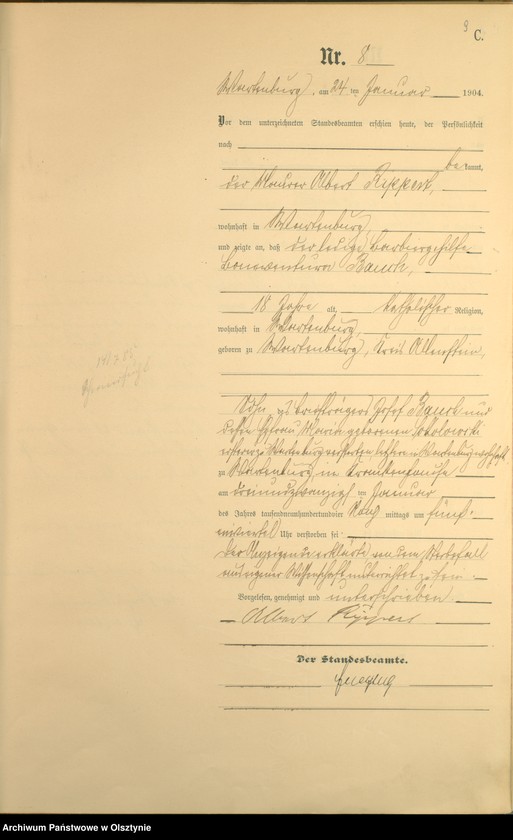 9
C.
Nr. 8
Wartenburg, am 24 ten Januar 1904.
Vor dem unterzeichneten Standesbeamten erschien heute, der Persönlichkeit
nach
bekannt,
der Maurer Albert Rippert,
wohnhaft in Wartenburg,
und zeigte an, daß der ledige
Bonaventura Bausch,
18 Jahre alt, katholischer Religion,
wohnhaft in Wartenburg,
geboren zu Wartenburg, Kreis Allenstein,
Sohn des Briefträgers Josef Bausch und
dessen Ehefrau Maria geborenen Sokolowski
zu Wartenburg, im Krankenhause
am dreiundzwanzigsten Januar
des Jahres tausendneunhundertundvier Nachmittags um fünf
Uhr verstorben sei.
Der Anzeigende erklärte, von dem Sterbefall
aus eigener Wissenschaft unterrichtet zu sein.
Vorgelesen, genehmigt und unterschrieben
Albert
Der Standesbeamte.
Archiwum Państwowe w Olsztynie